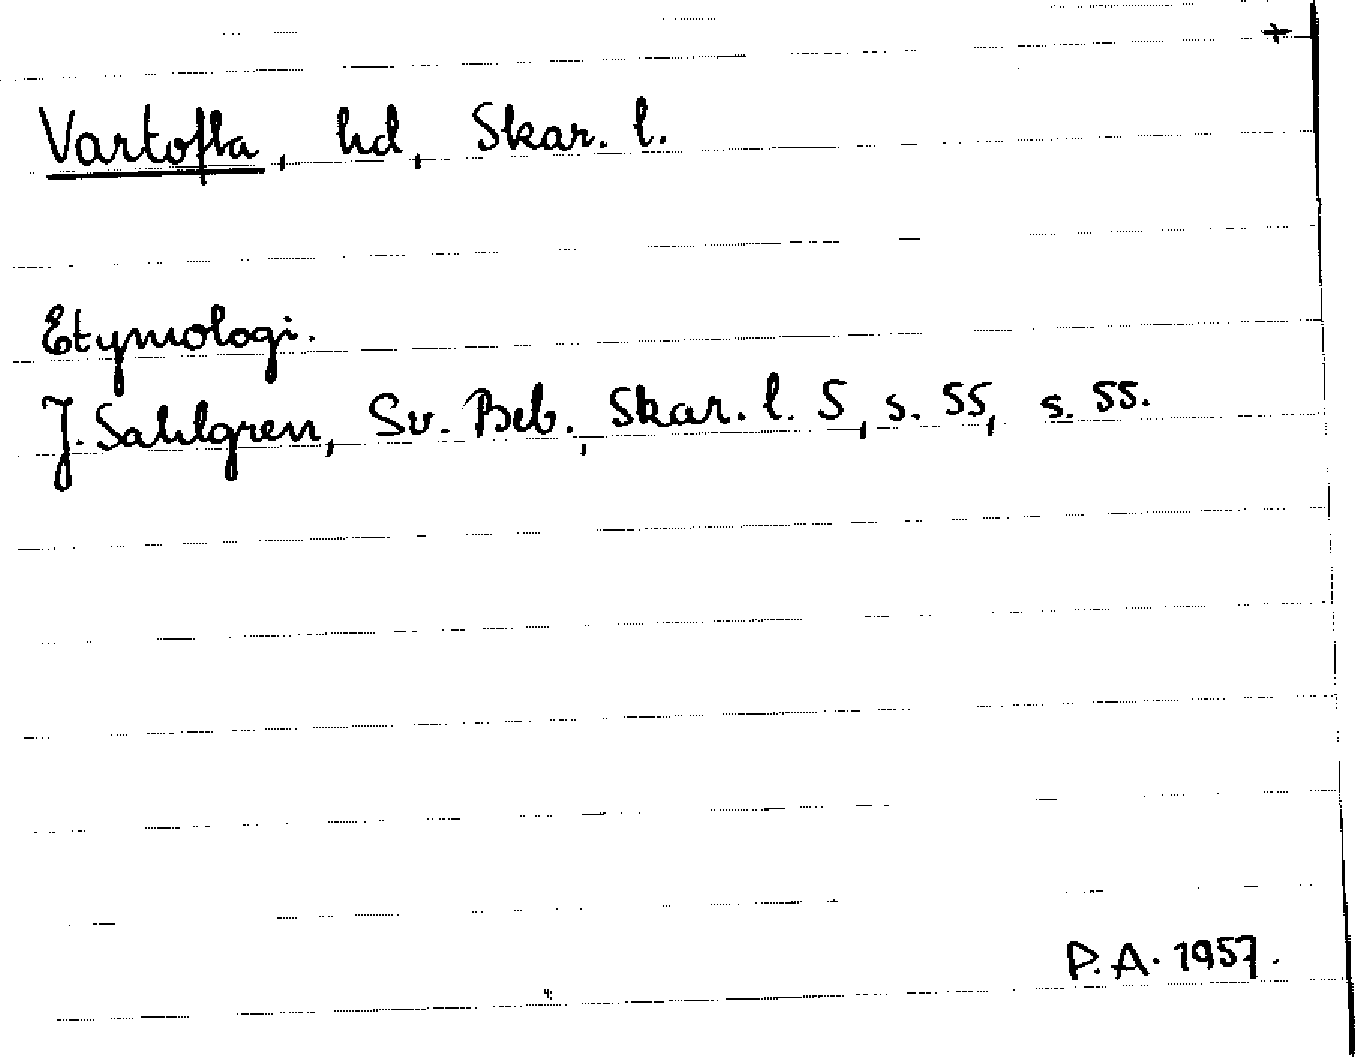 +
Vartofta, hd, Skar. l.
Etymologi.
J. Sahlgren, Sv. Beb., Skar. l. 5, s. 55, s. 55.
P.A. 1957.